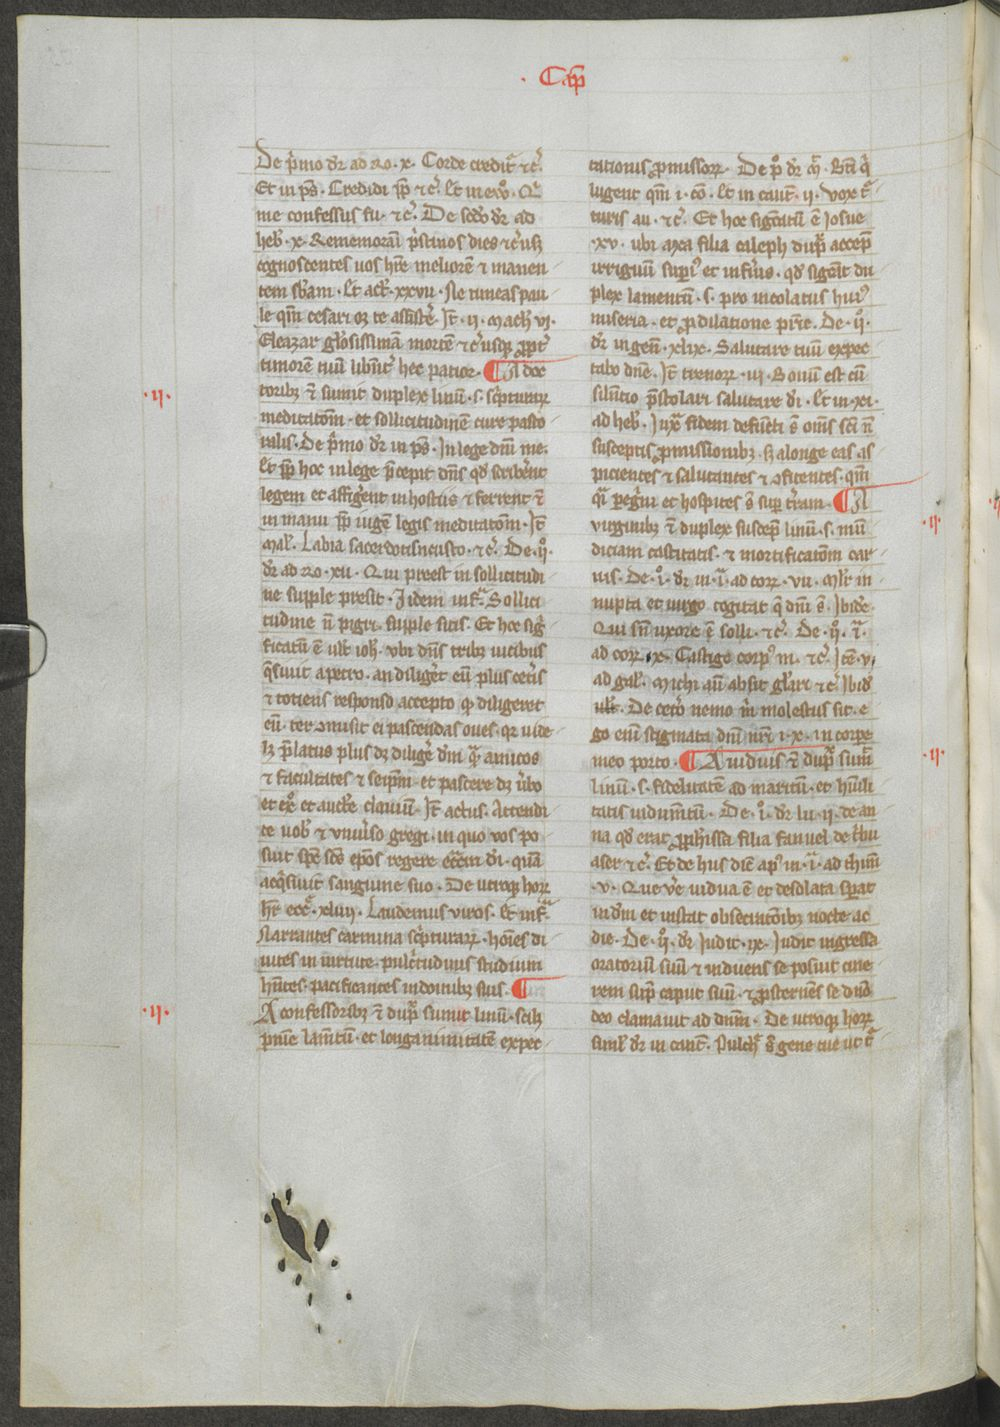 · Cap̄
De p̄mo dr̄ ad ro · x · Corde credit̄ ⁊c̄
Et in ps̄ · Credidi ꝓp̄ ⁊c̄ · Et in
me confessus fu · ⁊c̄ · De sc̄do dr̄ ad
heb̄ · x · Rememorāī p̄stinos dies ⁊c̄ usq̄
cognoscentes uos hr̄e meliorē ⁊ manen
tem sb̄am · Et act̄ · xxvii · Ne timeas pau
le qm̄ cesari oꝫ te assistē · It̄ · ii · mach̄ vi ·
Eleazar gl̄osissimam mortē ⁊c̄ usq̄ ꝓpt̄
timorē tuū libēt̄ hec patior · ¶ A doc
· ii ·
toribꝫ ē sumit duplex linū · s · sc̄pturarꝝ
meditatōm · et sollicitudinē cure pasto
ralis · De p̄mo dr̄ in ps̄ · In lege dn̄i me ·
Et ꝓp̄ hoc in lege p̄cepit dn̄s qd̄ scrib̄ent
legem et affiḡent in hostiis ⁊ ferrent ē
in manu ꝓp̄ iugē legis meditatōm · It̄
mal̄ · Labia sacerdotis custo · ⁊c̄ · De · ii° ·
dr̄ ad ro · xii · Qui preest in sollicitudi
ne supple presit · Idem inf̄ · Sollici
tudine n̄ pigri · supple sitis · Et hoc sig̃
ficatū ē ult̄ ioh̄ · vbi dn̄s tribꝫ uicibus
q̄siuit a petro · an diliḡet eū plus cet̄is
⁊ totiens responso accepto qꝫ diligeret
eū · ter ꝯmisit ei pascendas oues · qr uide
lꝫ p̄latus plus dꝫ diliḡe dm̄ q̄ amicos
⁊ facultates ⁊ seipm̄ · et pascere dꝫ ūbo
et ex° et auct̄e clauiū · It̄ actus · Attendi
te uob̄ ⁊ uniūso gregi · in quo vos po
suit sp̄c sc̄s ep̄os regere ecc̄am dī · quā
acq̄siuit sanguine suo · De utroqꝫ horꝝ
hr̄ ecc̄ · xliiii · Laudemus viros · Et inf̄ ·
Narrantes carmina sc̄pturarꝝ · hoīes di
uites in uirtute · pulc̄tudinis studium
hn̄tes · pacificantes in domibꝫ suis · ¶
· ii ·
A confessoribꝫ ē dup̄x sumit linū · sciꝫ
p̄nie lam̄tū · et longanimitatē expec
tationis ꝓmissorꝝ · De p° dr̄ m̄ · Bt̄i q̄
lugent qm̄ i · co · Et in cant̄ · ii · Vox t̄
turis au · ⁊c̄ · Et hoc sig̃catū ē Iosue
· xv · ubi axa filia caleph dup̄x accep̄
irriguū sup̄i et inf̄ius · qd̄ sig̃ent du
plex lamentū · s · pro incolatus huī
miseria · et ꝓ dilatione prīe · De · ii° ·
dr̄ in gen̄ · xlix · Salutare tuū expec
tabo dn̄e · It̄ trenorꝝ · iii · Bonū est cū
silen̄tio p̄stolari salutare dī · Et in · xi ·
ad heb̄ · Iuxͣ fidem defuncti s̄ om̄s isti n̄
susceptis ꝓmissionibꝫ · sꝫ a longe eas as
picientes ⁊ salutantes ⁊ ꝯfitentes · qm̄
qꝫ peḡni et hospites s̄ sup t̄ram · ¶ A
· ii ·
virginibꝫ ē duplex suscep̄ linū · s · mū
diciam castitatis · ⁊ mortificatōm car
nis · De · i° · dr̄ in · iͣ · ad corꝝ · vii · Mlr̄ in
nupta et uirgo cogitat q̄ dn̄i s̄ · Ibidē ·
Qui sn̄ uxore ē solli · ⁊c̄ · De · ii° · iͣ ·
ad corꝝ · ix · Castigo corp̄ m · ⁊c̄ · Itē · vi ·
ad gal̄ · Michi aū absit gl̄ari ⁊c̄ Ibid̄
ult̄ · De cet̄o nemo m̄ molestus sit · e
go eī stigmata dn̄i nr̄i i · x · in corpe
meo porto · ¶ A uiduis ē dup̄x sum̄
· ii ·
linū · s · fidelitatē ad maritū · et hūili
tatis indum̄tū · De · i° · dr̄ lu · ii · de an
na qd̄ erat ꝓph̄issa filia fanuel de tbu
aser ⁊c̄ · Et de hiis dic̄ ap̄ in · iͣ · ad thim̄
· v · Que ūe uidua ē et desolata sperat
in dm̄ et instat obsecratōibꝫ nocte ac
die · De · ii° · dr̄ Iudit · ix · Iudit ingressa
oratoriū suū ⁊ induens se posuit cine
rem suꝑ caput suū · ⁊ ꝓsternēs se dn̄o
deo clamauit ad dn̄m · De utroqꝫ horꝝ
siml̄ dr̄ in cant̄ · Pulch̄ s̄ gene tue ut t̄